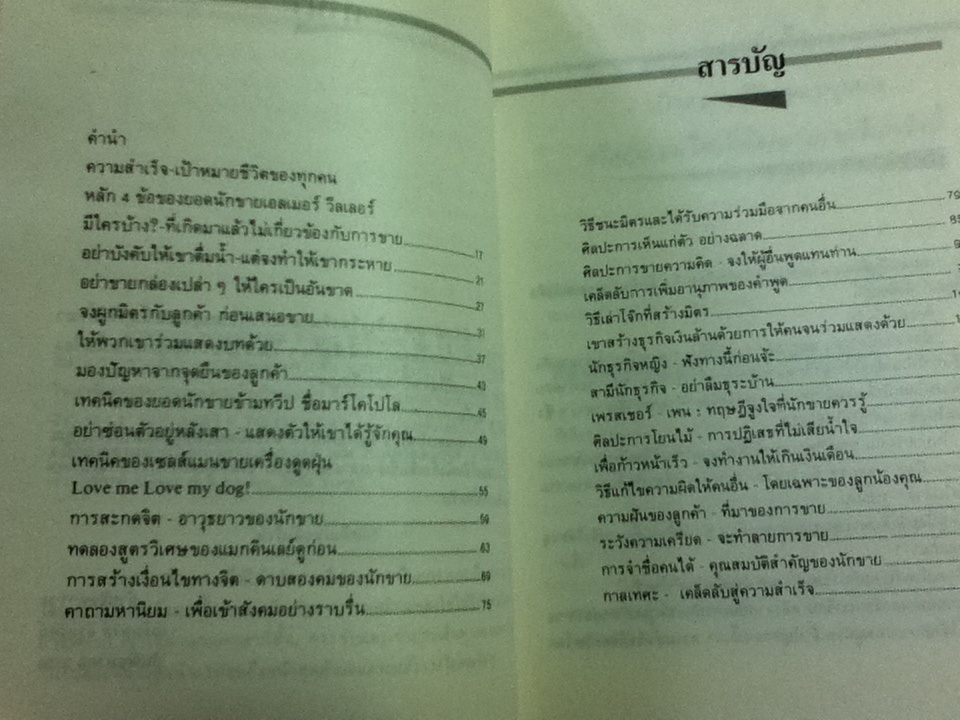 คำนำ
ความสำเร็จ-เป้าหมายชีวิตของทุกคน
หลัก 4 ข้อของยอดนักขายเอลเมอร์ วีลเลอร์
มีใครบ้าง?-ที่เกิดมาแล้วไม่เกี่ยวข้องกับการขาย 17
อย่าบังคับให้เขาดื่มน้ำ-แต่จงทำให้เขากระหาย 21
อย่าขายกล่องเปล่า ๆ ให้ใครเป็นอันขาด 27
จงผูกมิตรกับลูกค้า ก่อนเสนอขาย 31
ให้พวกเขาร่วมแสดงบทด้วย 37
มองปัญหาจากจุดยืนของลูกค้า 43
เทคนิคของยอดนักขายข้ามทวีป ชื่อมาร์โคโปโล 45
อย่าซ่อนตัวอยู่หลังเสา - แสดงตัวให้เขาได้รู้จักคุณ 49
เทคนิคของเซลส์แมนขายเครื่องดูดฝุ่น
Love me Love my dog! 55
การสะกดจิต - อาวุธยาวของนักขาย 59
ทดลองสูตรวิเศษของแมกคีนเลย์ดูก่อน 63
การสร้างเงื่อนไขทางจิต - ดาบสองคมของนักขาย 69
คาถามหานิยม - เพื่อเข้าสังคมอย่างราบรื่น 75
สารบัญ
วิธีชนะมิตรและได้รับความร่วมมือจากคนอื่น 79
ศิลปะการเห็นแก่ตัว อย่างฉลาด 85
ศิลปะการขายความคิด - จงให้ผู้อื่นพูดแทนท่าน
เคล็ดลับการเพิ่มอานุภาพของคำพูด
วิธีเล่าโจ๊กที่สร้างมิตร
เขาสร้างธุรกิจเงินล้านด้วยการให้คนจนร่วมแสดงด้วย
นักธุรกิจหญิง - ฟังทางนี้ก่อนจ้ะ
สามีนักธุรกิจ - อย่าลืมธุระบ้าน
เพรสเชอร์ - เพน : ทฤษฎีจูงใจที่นักขายควรรู้
ศิลปะการโยนไม้ - การปฏิเสธที่ไม่เสียน้ำใจ
เพื่อก้าวหน้าเร็ว - จงทำงานให้เกินเงินเดือน
วิธีแก้ไขความผิดให้คนอื่น - โดยเฉพาะของลูกน้องคุณ
ความฝันของลูกค้า - ที่มาของการขาย
ระวังความเครียด - จะทำลายการขาย
การจำชื่อคนได้ - คุณสมบัติสำคัญของนักขาย
กาลเทศะ - เคล็ดลับสู่ความสำเร็จ